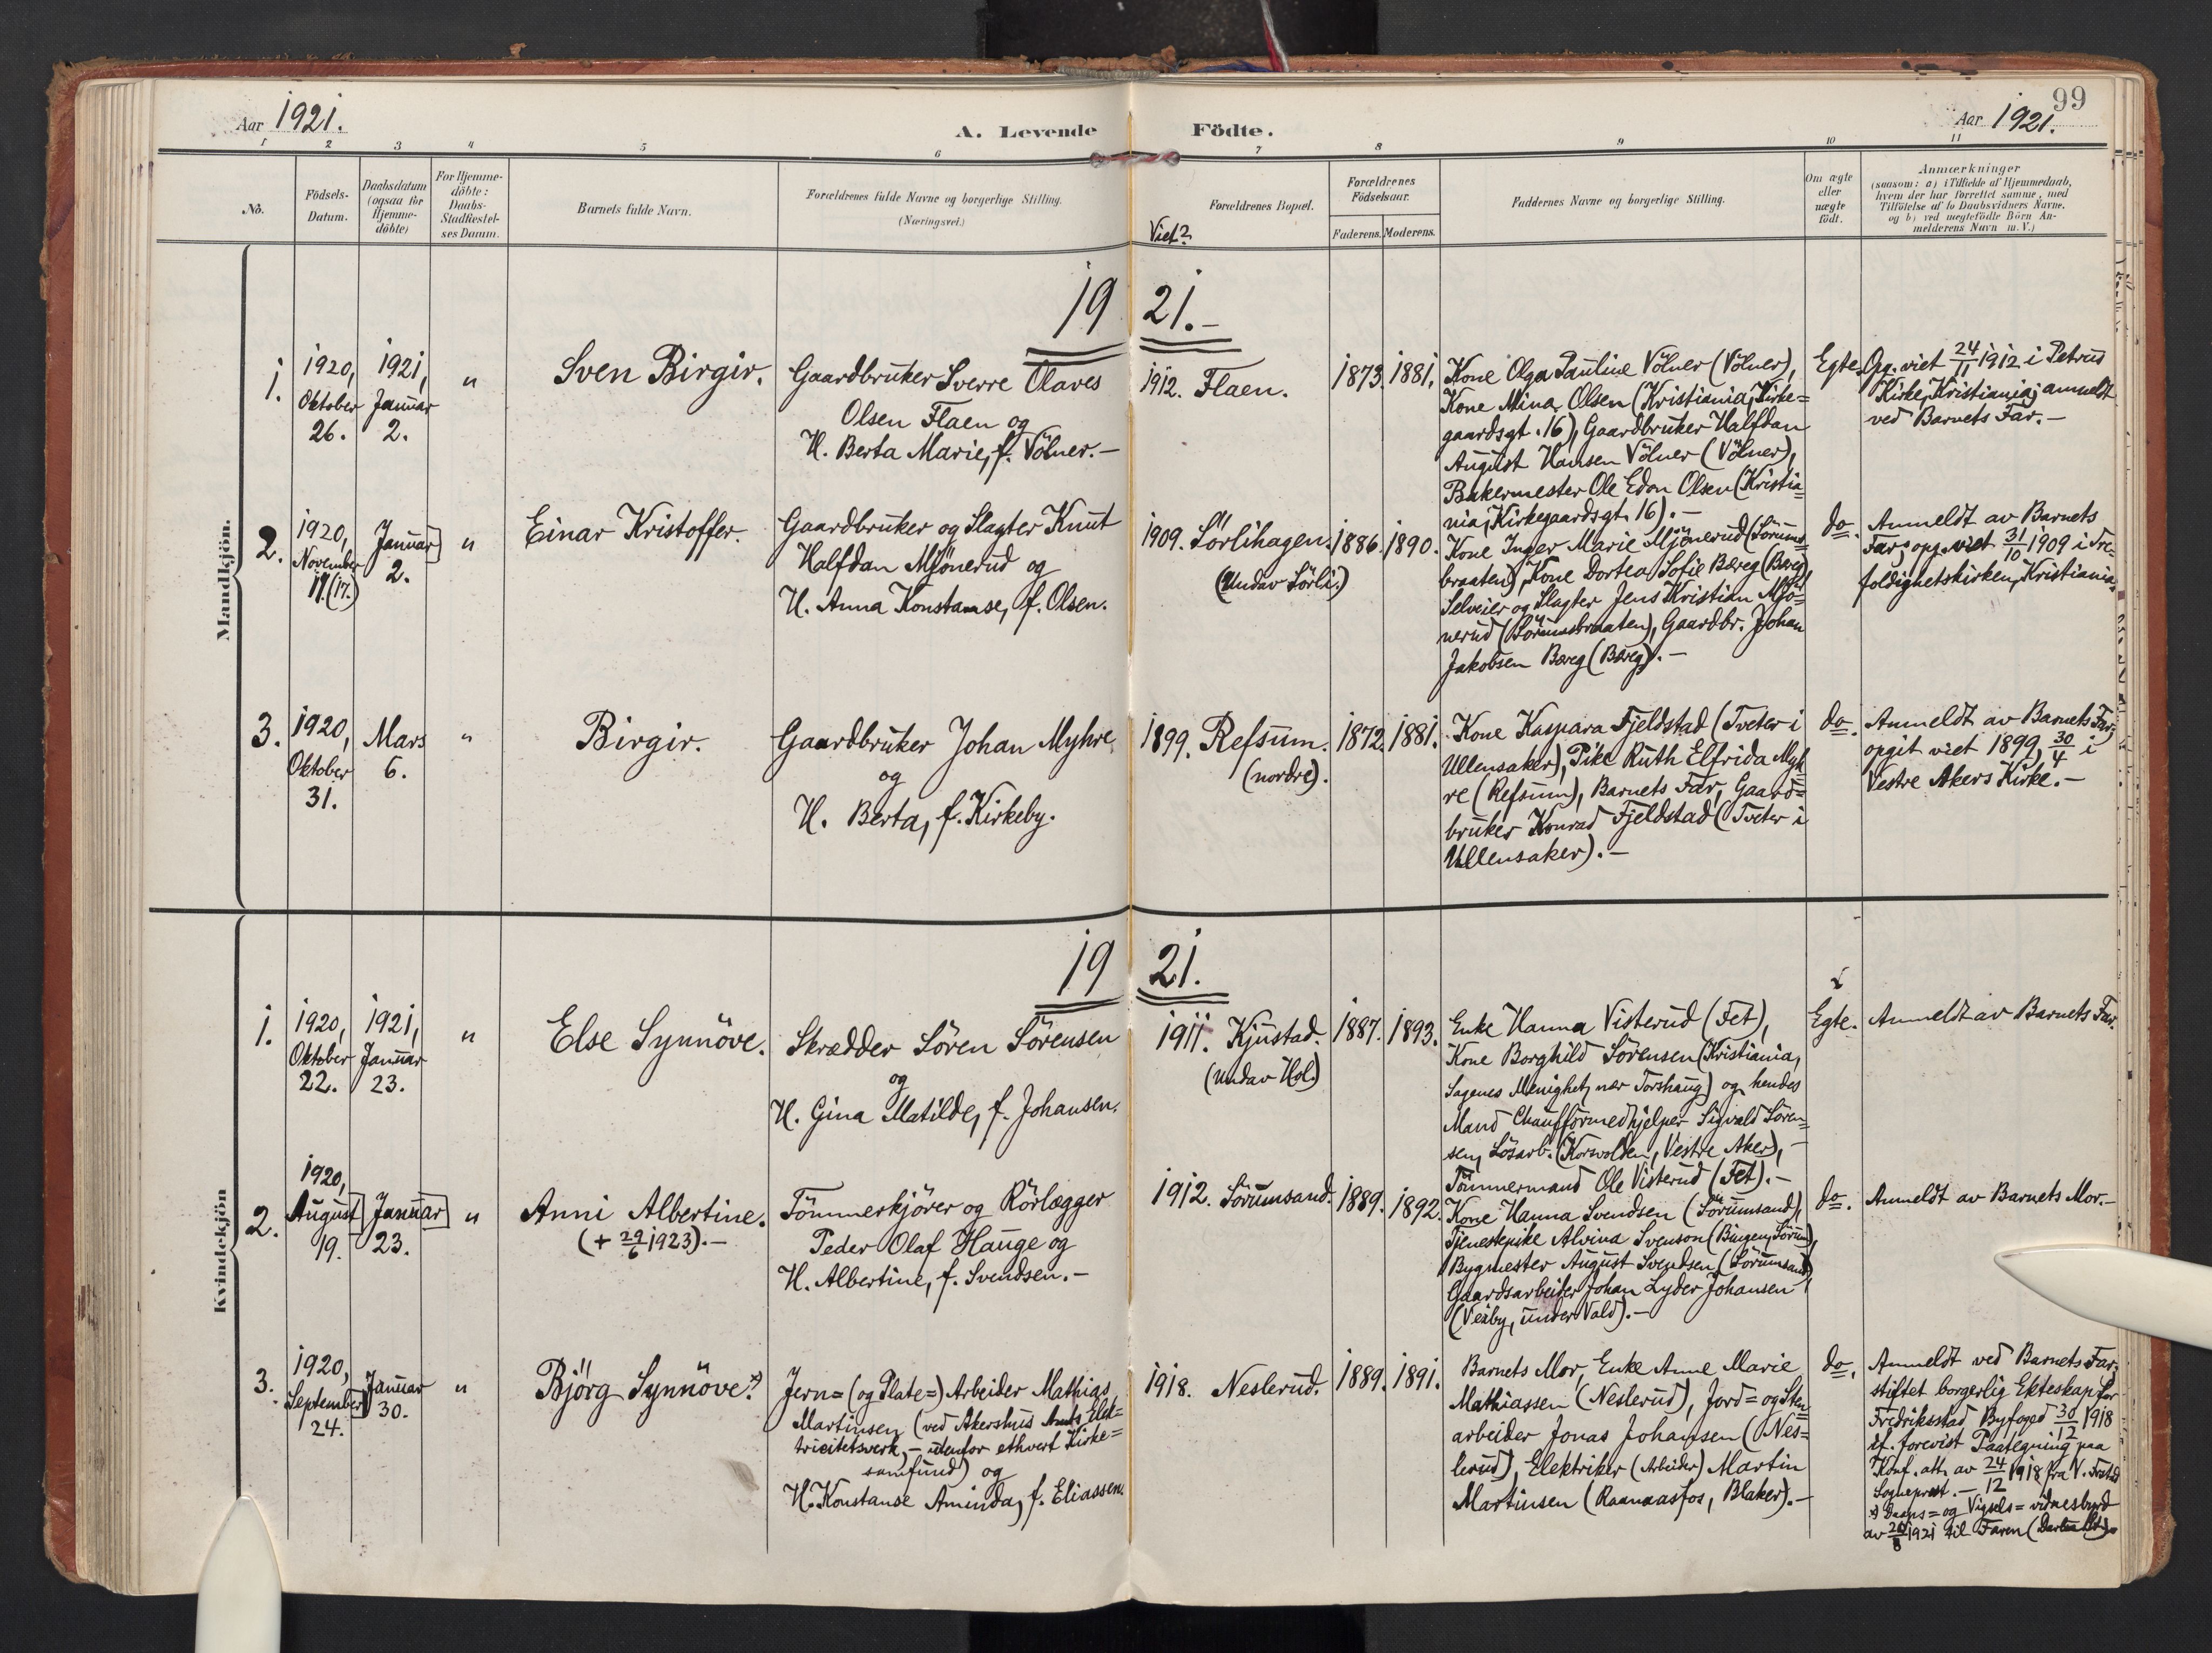 99
Aar 1921.
A. Levende Födte.
Aar 1921.
1 2 3 4 5 6 7 8 9 10 11
No.
Födsels-
Datum.
Daabsdatum
(ogsaa for
Hjemme-
döbte)
For Hjemme-
döbte:
Daabs-
Stadfæstel-
ses Datum.
Barnets fulde Navn.
Forældrenes fulde Navne og borgerlige Stilling.
(Næringsvei.)
Viet?
Forældrenes Bopæl.
Forældrenes
Födselsaar.
Faderens. Moderens.
Faddernes Navne og borgerlige Stilling.
Om ægte
eller
uægte
født.
Anmærkninger
(saasom: a) i Tilfælde af Hjemmedaab,
hvem der har forrettet samme, med
Tilföielse af to Daabsvidners Navne,
og b) ved uægtefödte Börn An-
melderens Navn m. V.)
Mandkjön.
1921.-
1.
1920,
Oktober
26.
1921,
Januar
2.
"
Sven Birgir.
Gaardbruker Sverre Olaves
Olsen Flaen og
H. Berta Marie, f. Völner.-
1912. Flaen.
1873. 1881.
Kone Olga Pauline Völner (Völner),
Kone Mina Olsen (Kristiania, Kirke=
gaardsgt. 16), Gaardbruker Halfdan
August Hansen Völner (Völner),
Bakermester Ole Edon Olsen (Kristia=
nia, Kirkegaardsgt. 16).-
Egte.
Opg. viet 24/11 1912 i Petrus
Kirke, Kristiania; anmeldt
ved Barnets Far.-
2.
1920,
November
17. (17.)
Januar
2.
"
Einar Kristoffer.
Gaardbruker og Slagter Knut
Halfdan Mjönerud og
H. Anna Konstanse, f. Olsen.
1909. Sörlihagen.
(Undav Sörli.)
1886. 1890.
Kone Inger Marie Mjönerud (Sörums=
braaten), Kone Dortea Sofie Bæreg (Bæreg),
Selveier og Slagter Jens Kristian Mjö=
nerud (Sörumsbraaten), Gaardbr. Johan
Jakobsen Bæreg (Bæreg).-
do.
Anmeldt av Barnets
Far; opg. viet 31/10 1909 i Tre-
foldighetskirken, Kristiania.
3.
1920,
Oktober
31.
Mars
6.
"
Birgir.
Gaardbruker Johan Myhre,
og
H. Berta, f. Kirkeby.
1899. Refsum.
(nordre).
1872. 1881.
Kone Kaspara Fjeldstad (Tveter i
Ullensaker), Pike Ruth Elfrida Myh=
re (Refsum), Barnets Far, Gaard=
bruker Konrad Fjeldstad (Tveter i
Ullensaker).-
do.
Anmeldt av Barnets Far;
opgit viet 1899, 30/4 i
Vestre Akers Kirke.-
Kvindekjön
1921.
1.
1920,
Oktober
22.
1921,
Januar
23.
"
Else Synnöve.
Skrædder Sören Sörensen
og
H. Gina Matilde, f. Johansen.
1911. Kjustad.
(undav Hol.)
1887. 1893.
Enke Hanna Visterud (Fet),
Kone Borghild Sörensen (Kristiania,
Sagenes Menighet, nær Torshaug) og hendes
Mand Chaufförmedhjelper Sigvald Sören=
sen, Lösarb. (Korsvolden, Vestre Aker),-
Tömmermand Ole Visterud (Fet).-
Egte.
Anmeldt av Barnets Far.
2.
1920,
August
19.
Januar
23.
"
Anni Albertine.
(+ 29/6 1923).-
Tömmerkjörer og Rörlægger
Peder Olaf Hauge og
H. Albertine, f. Svendsen.-
1912. Sörumsand.
1889. 1892.
Kone Hanna Svendsen (Sörumsand),
Tjenestepike Alvina Svenson (Bingen, Sörum),
Bygmester August Svendsen (Sörumsand),
Gaardsarbeider Johan Lyder Johansen
(Veiby, under Vald).-
do.
Anmeldt av Barnets Mor.-
3.
1920,
September
24.
Januar
30.
"
Björg Synnöve.*)
Jern= (og Plate=) Arbeider Mathias
Martinsen (ved Akershus Amts Elek=
tricitetsverk,- utenfor ethvert Kirke=
samfund) og
H. Konstanse Aminda, f. Eliassen.
1918. Neslerud.
1889. 1891.
Barnets Mor, Enke Anne Marie
Mathiassen (Neslerud), Jord= og Sten=
arbeider Jonas Johansen (Nes=
lerud), Elektriker (Arbeider) Martin
Martinsen (Raanaasfos, Blaker).-
do.
Anmeldt ved Barnets Far;
stiftet borgerlig Ekteskap for
Fredriksstad Byfoged 30/12 1918
if. forevist Paategning paa
Konf. att. av 24/12 1918 fra V. Frstad
Sogneprest.-
*) Daaps= og Vigsels= vidnesbyrd
av 20/8 1921 til Faren